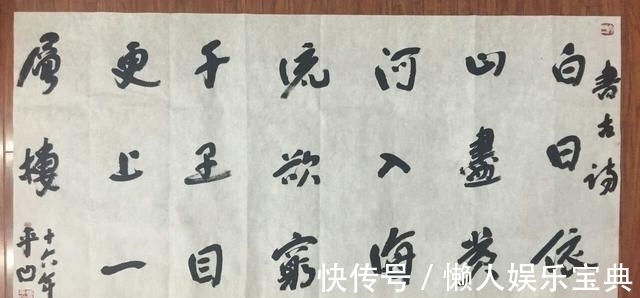 書古诗
白日依
山盡黄
河入海
流欲窮
千里目
更上一
層樓
十六年
平凹
快传号 / 懒人娱乐宝典